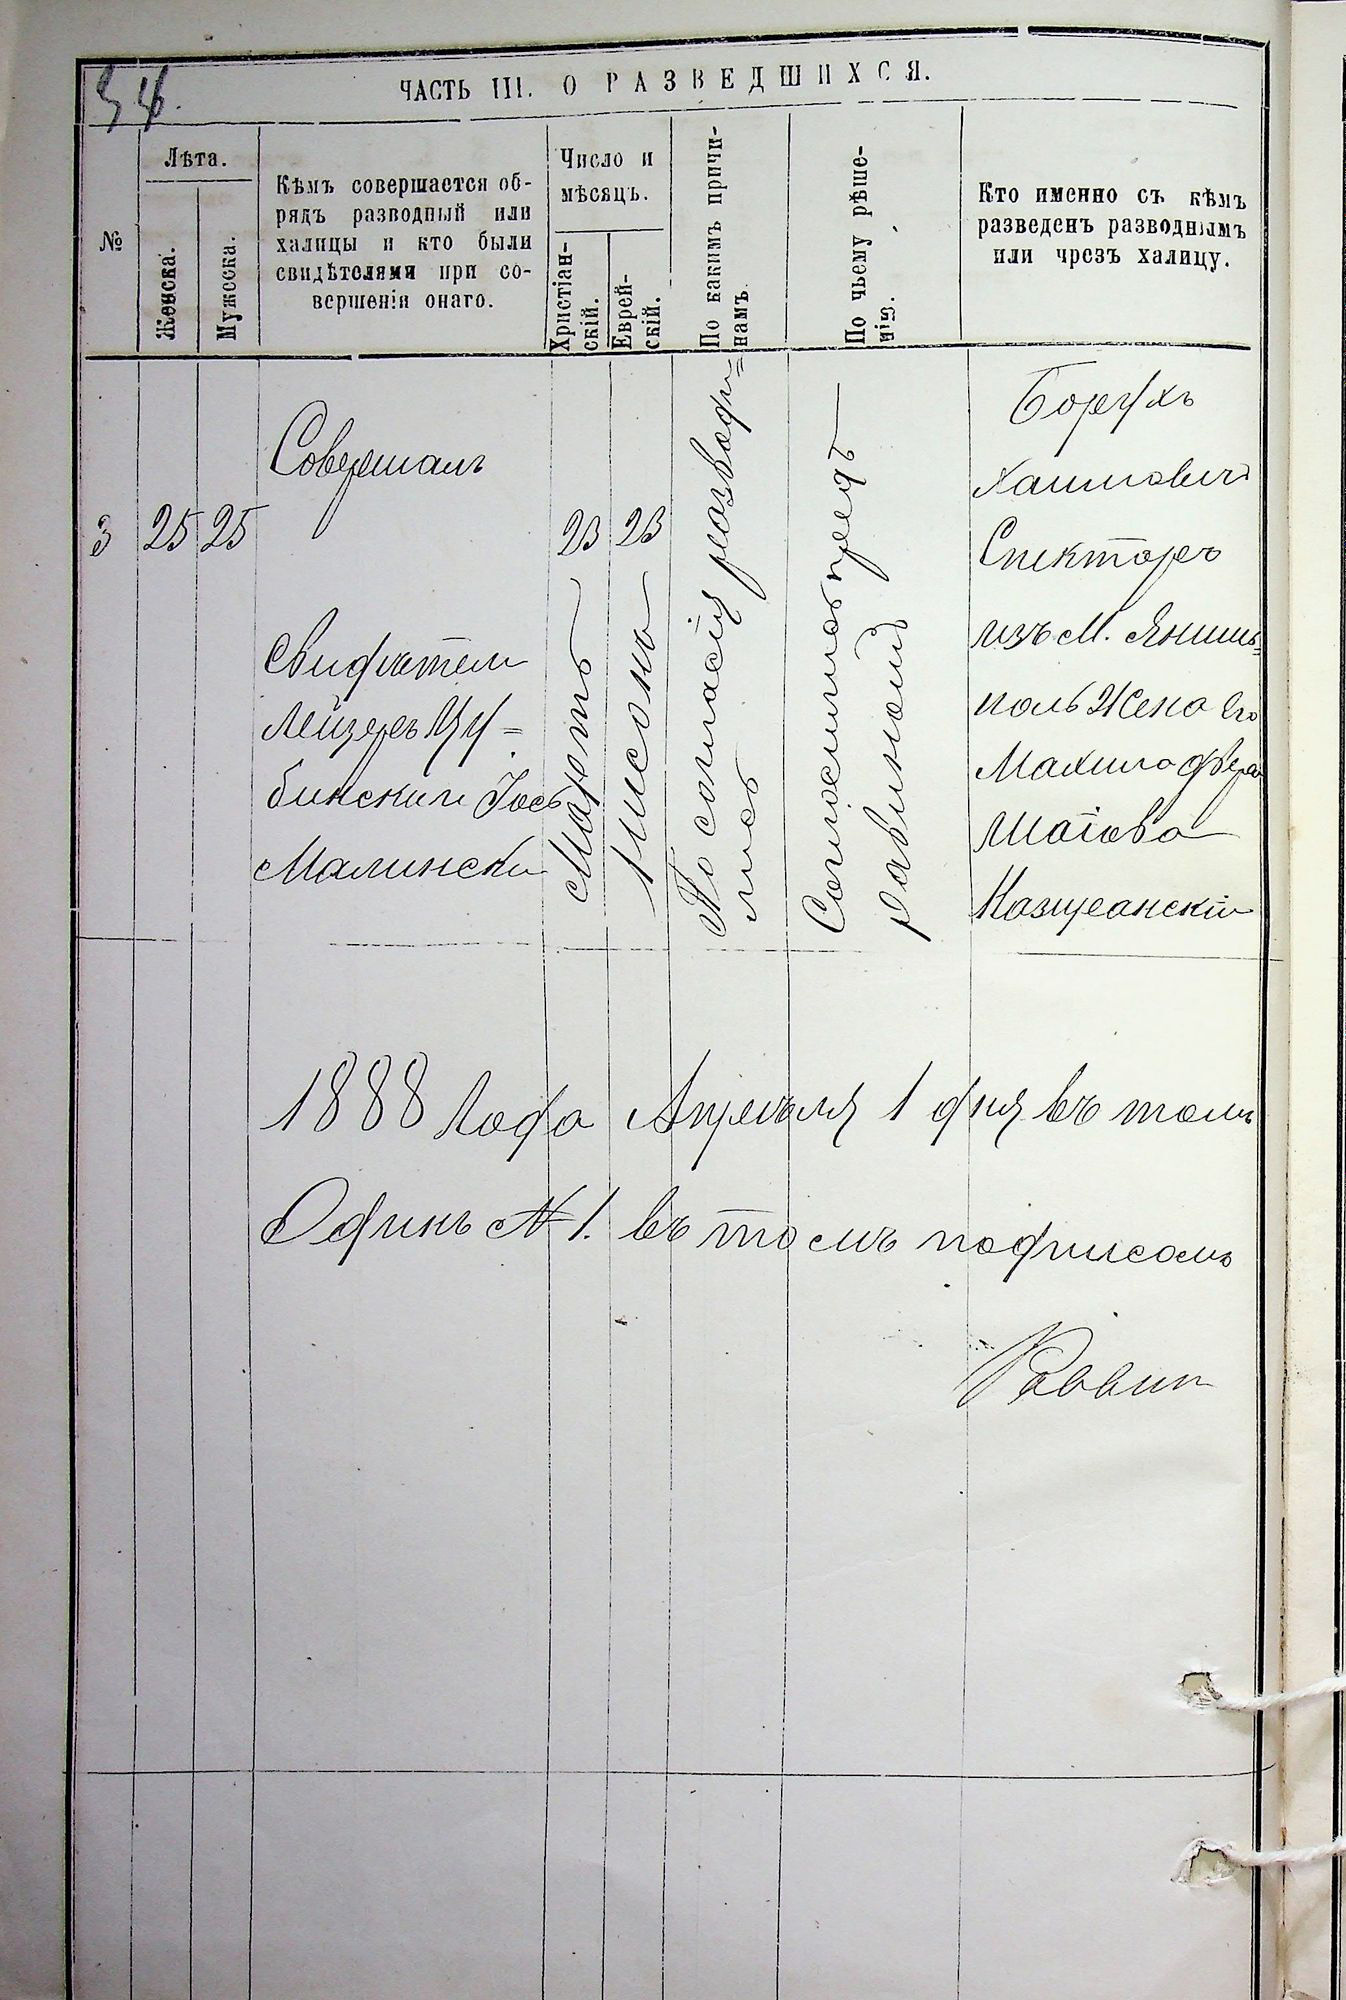 34.
ЧАСТЬ III. О РАЗВЕДШИХСЯ.
№
Лѣта.
Женска.
Мужеска.
Кѣмъ совершается об-
рядъ разводный или
халицы и кто были
свидѣтелями при со-
вершеніи онаго.
Число и
мѣсяцъ.
Христіан-
скій.
Еврей-
скій.
По какимъ причи-
намъ.
По чьему рѣше-
нію.
Кто именно съ кѣмъ
разведенъ разводнымъ
или чрезъ халицу.
3
25
25
Совершалъ
Свидѣтели
Лейзеръ Цу-
бинскии Іось
Малински
23
Мартъ
23
Нисонъ
По согласія разводи=
предъ
равиномъ
Борухъ
Хаимовичъ
Спекторъ
изъ М. Янишъ=
поль Жена его
Шаіова
1888 Года Апрѣля 1 дня въ томъ
Одинъ № 1. въ томъ подписомъ
Раввин